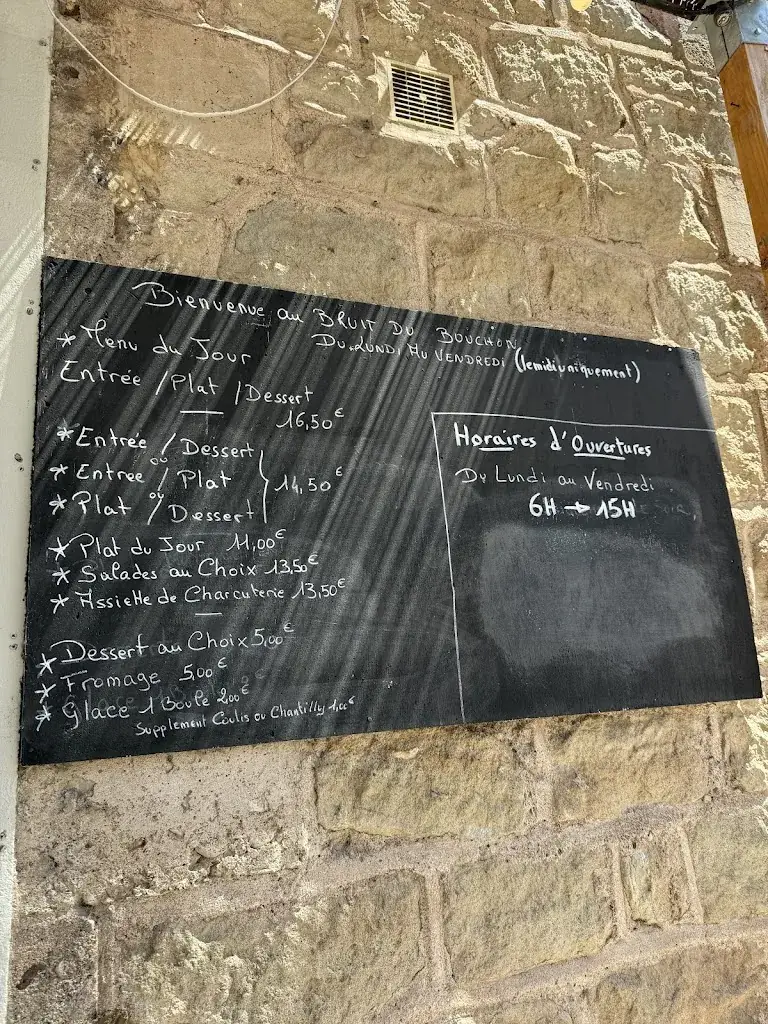 Bienvenue au BRUIT DU BOUCHON
* Menu du Jour
DU LUNDI AU VENDREDI (le midi uniquement)
Entrée / Plat / Dessert
16,50€
* Entrée / Dessert
ou
* Entree / Plat
14,50€
ou
* Plat / Dessert
* Plat du Jour 11,00€
* Salades au Choix 13,50€
* Assiette de Charcuterie 13,50€
* Dessert au Choix 5,00€
* Fromage 5,00€
* Glace 1 Boule 2,00€
Supplement Coulis ou Chantilly 1,00€
Horaires d'Ouvertures
Du Lundi au Vendredi
6H → 15H